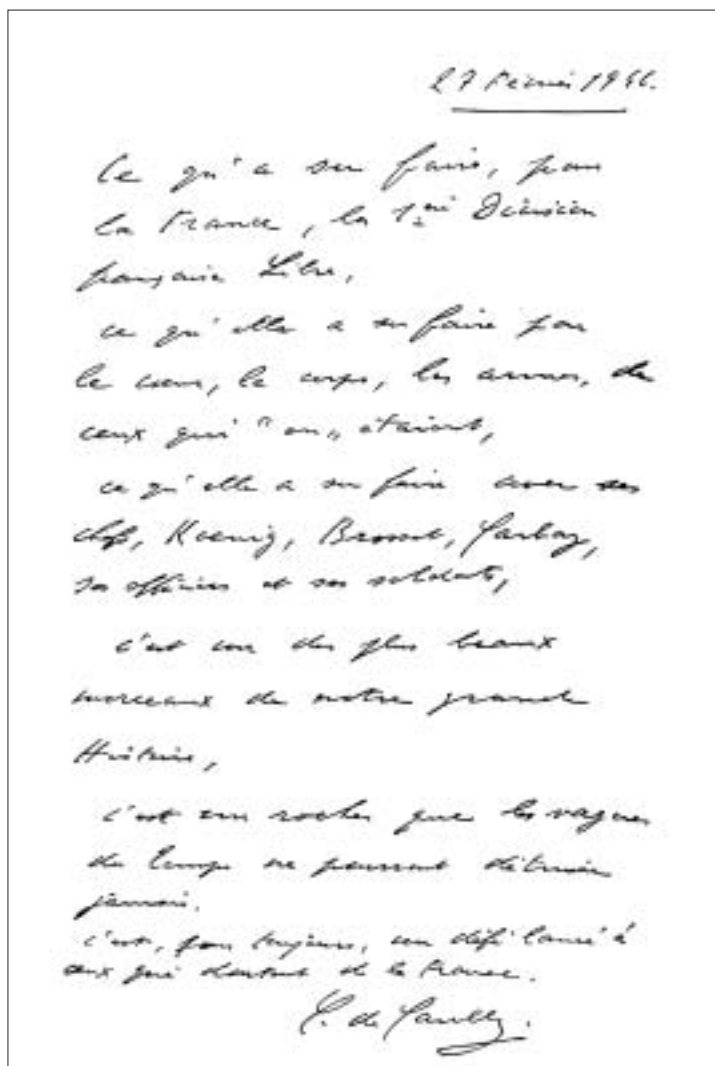 27 Février 1946.
Ce qu'a su faire, pour
la France, la 1ère Division
française Libre,
ce qu'elle a su faire par
le cœur, le corps, les armes, de
ceux qui "en" étaient,
ce qu'elle a su faire avec ses
chefs, Koenig, Brosset, Garbay,
ses officiers et ses soldats,
c'est un des plus beaux
morceaux de notre grande
Histoire,
c'est un rocher que les vagues
du temps ne pourront détruire
jamais.
C'est, pour toujours, un défi lancé à
ceux qui doutent de la France.
C. de Gaulle.